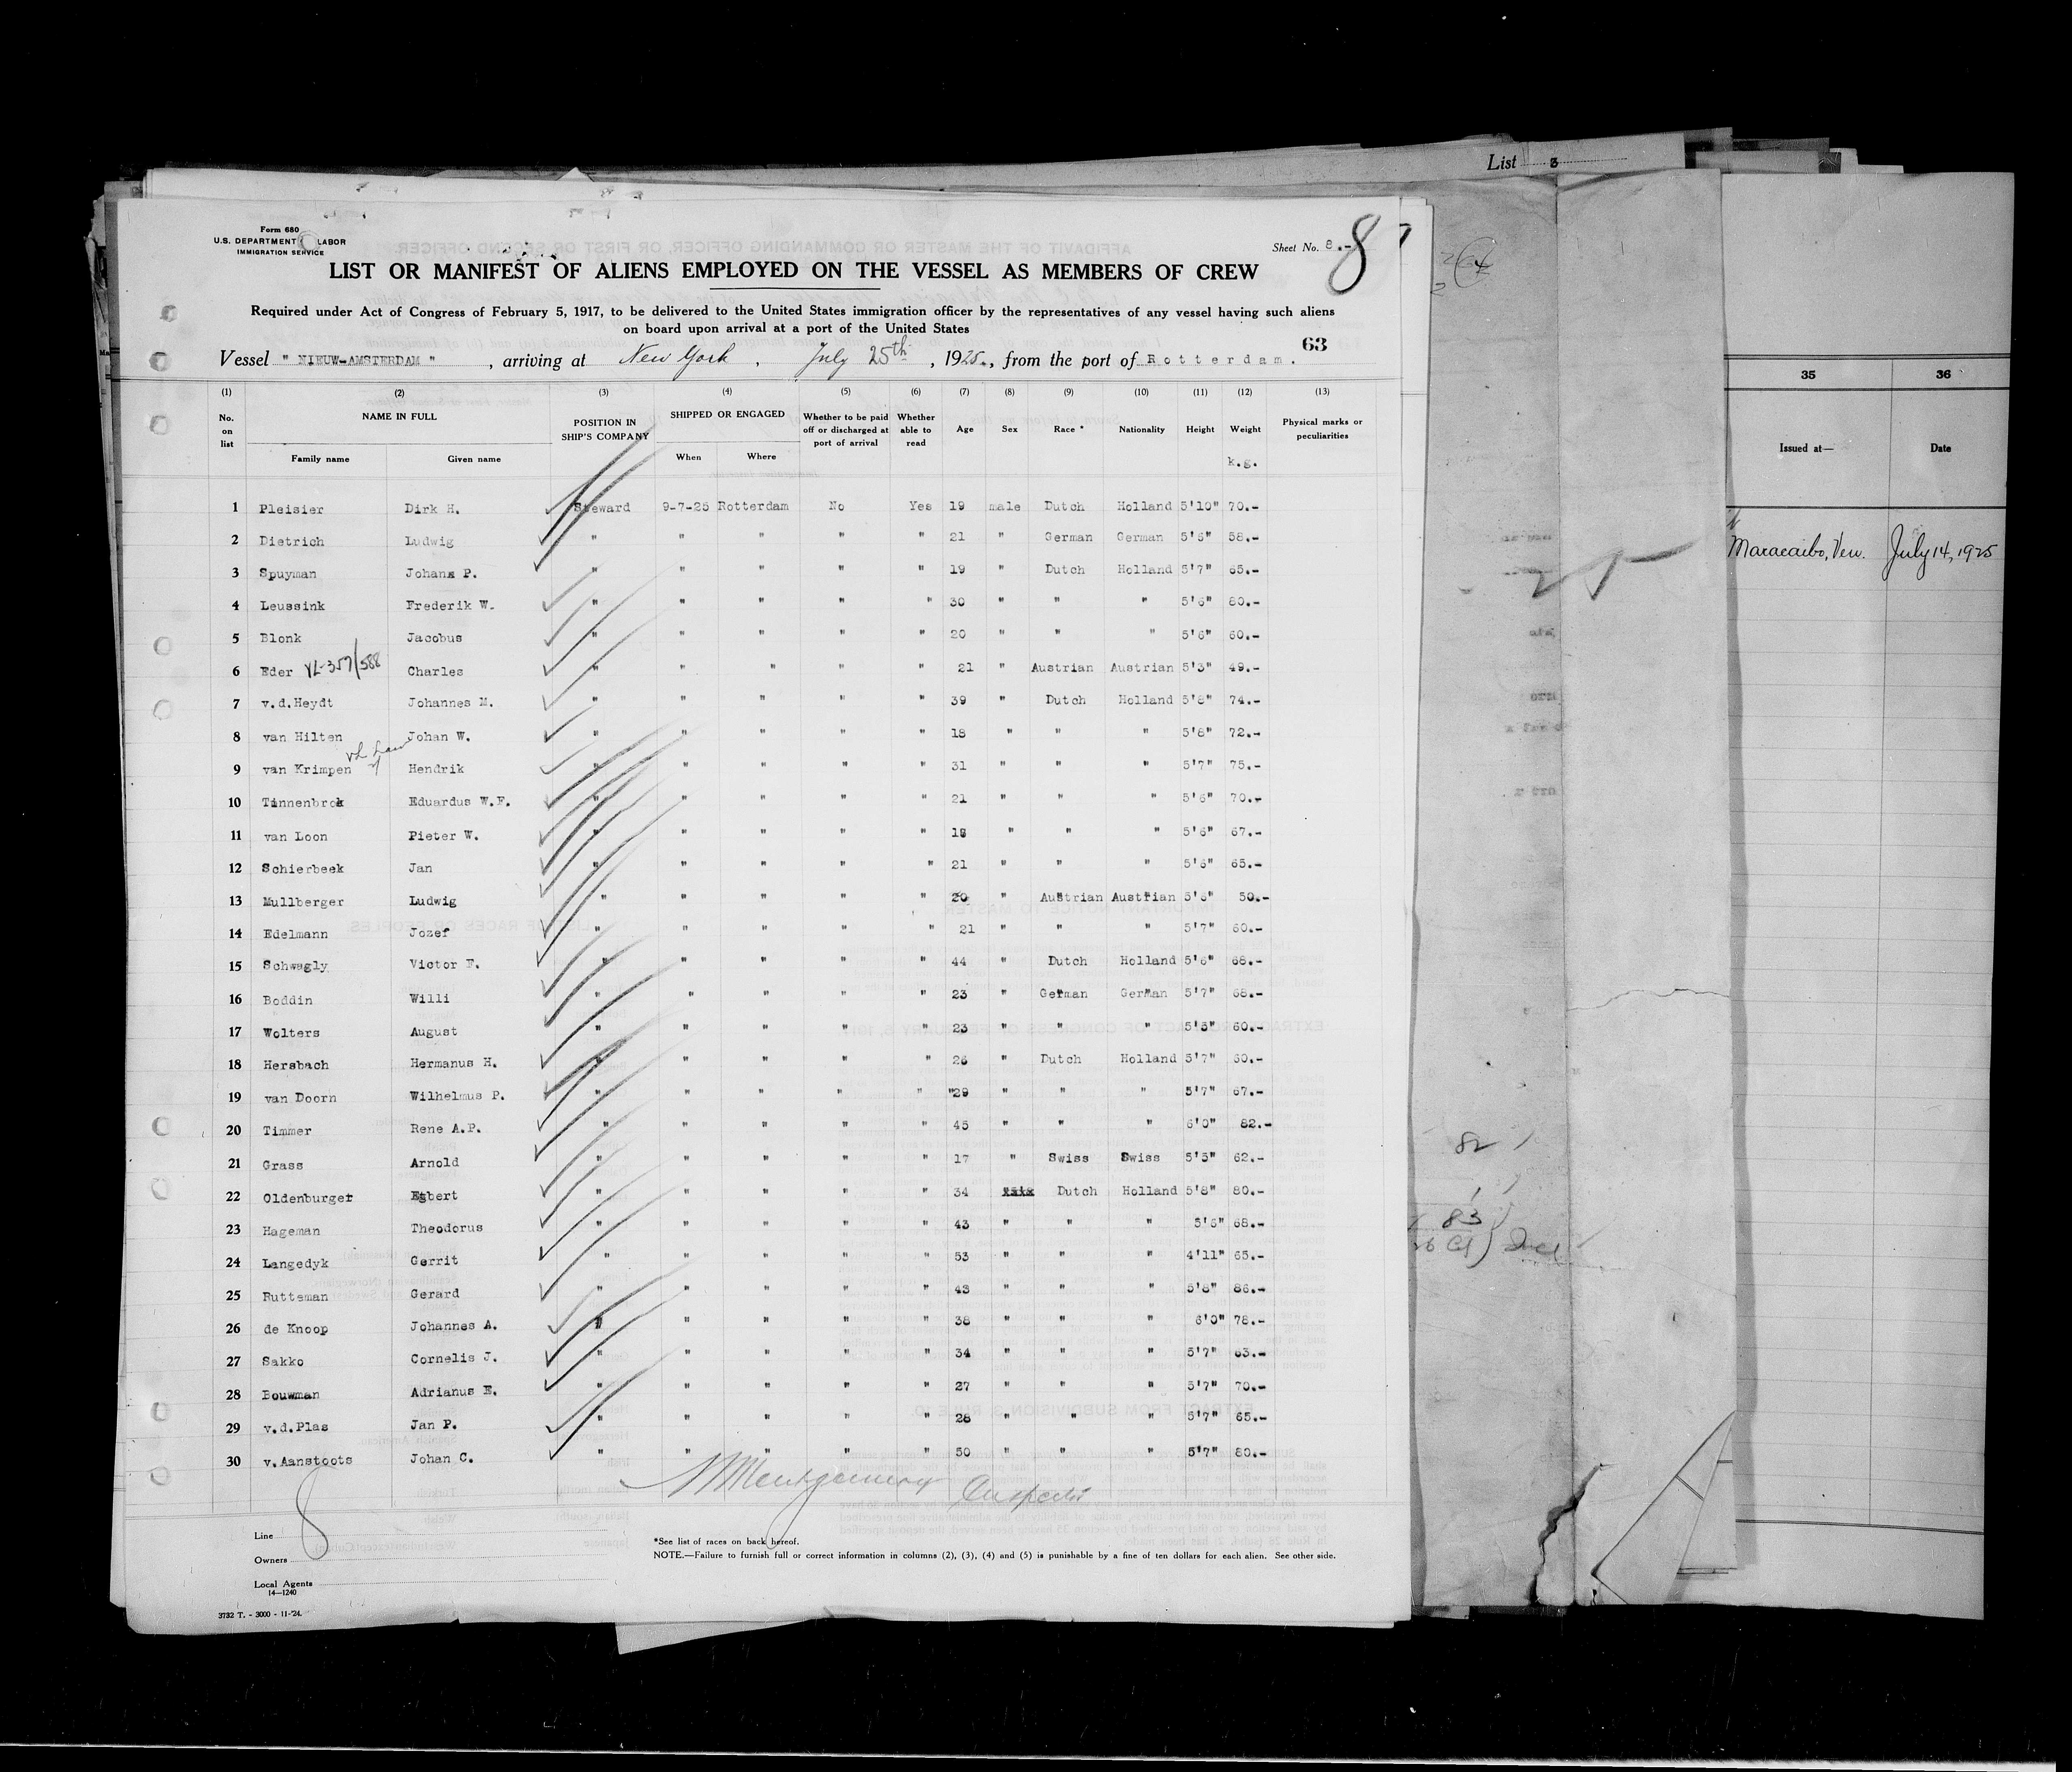 List 3
Form 680
U.S. DEPARTMENT LABOR
IMMIGRATION SERVICE
Sheet No. 8.- 8
LIST OR MANIFEST OF ALIENS EMPLOYED ON THE VESSEL AS MEMBERS OF CREW
Required under Act of Congress of February 5, 1917, to be delivered to the United States immigration officer by the representatives of any vessel having such aliens
on board upon arrival at a port of the United States
63
Vessel " NIEUW-AMSTERDAM ", arriving at New York, July 25th, 1925., from the port of Rotterdam.
(1) (2) (3) (4) (5) (6) (7) (8) (9) (10) (11) (12) (13)
No. on list NAME IN FULL POSITION IN SHIP'S COMPANY SHIPPED OR ENGAGED Whether to be paid off or discharged at port of arrival Whether able to read Age Sex Race * Nationality Height Weight Physical marks or peculiarities
Family name Given name When Where k.g.
1 Pleisier Dirk H. Steward 9-7-25 Rotterdam No Yes 19 male Dutch Holland 5'10" 70.-
2 Dietrich Ludwig " " " " " 21 " German German 5'6" 58.-
3 Spuyman Johans P. " " " " " 19 " Dutch Holland 5'7" 65.-
4 Leussink Frederik W. " " " " " 30 " " " 5'6" 80.-
5 Blonk Jacobus " " " " " 20 " " " 5'6" 60.-
6 Eder YL-357/588 Charles " " " " " 21 " Austrian Austrian 5'3" 49.-
7 v.d.Heydt Johannes M. " " " " " 39 " Dutch Holland 5'8" 74.-
8 van Hilten Johan W. " " " " " 18 " " " 5'8" 72.-
9 van Krimpen Hendrik " " " " " 31 " " " 5'7" 75.-
10 Tinnenbrok Eduardus W.F. " " " " " 21 " " " 5'6" 70.-
11 van Loon Pieter W. " " " " " 18 " " " 5'6" 67.-
12 Schierbeek Jan " " " " " 21 " " " 5'6" 65.-
13 Mullberger Ludwig " " " " " 20 " Austrian Austrian 5'6" 50.-
14 Edelmann Jozef " " " " " 21 " " " 5'7" 60.-
15 Schwegly Victor F. " " " " " 44 " Dutch Holland 5'6" 68.-
16 Boddin Willi " " " " " 23 " German German 5'7" 68.-
17 Wolters August " " " " " 23 " " " 5'5" 60.-
18 Hersbach Hermanus H. " " " " " 26 " Dutch Holland 5'7" 60.-
19 van Doorn Wilhelmus P. " " " " " "29 " " " 5'7" 67.-
20 Timmer Rene A.P. " " " " " 45 " " " 6'0" 82.-
21 Grass Arnold " " " " " 17 " Swiss Swiss 5'5" 62.-
22 Oldenburger Egbert " " " " " 34 Dutch Holland 5'8" 80.-
23 Hageman Theodorus " " " " " 43 " " " 5'6" 68.-
24 Langedyk Gerrit " " " " " 53 " " " 4'11" 65.-
25 Rutteman Gerard " " " " " 43 " " " 5'8" 86.-
26 de Knoop Johannes A. " " " " " 38 " " " 6'0" 78.-
27 Sakko Cornelis J. " " " " " 34 " " " 5'7" 63.-
28 Bouwman Adrianus E. " " " " " 27 " " " 5'7" 70.-
29 v.d.Plas Jan P. " " " " " 28 " " " 5'7" 65.-
30 v.Aanstoots Johan C. " " " " " 50 " " " 5'7" 80.-
Montgomery
8
Line
Owners
Local Agents
14—1240
3732 T. - 3000 - 11-'24.
*See list of races on back hereof.
NOTE.—Failure to furnish full or correct information in columns (2), (3), (4) and (5) is punishable by a fine of ten dollars for each alien. See other side.
82
83
35 36
Issued at— Date
Maracaibo, Ven. July 14, 1925